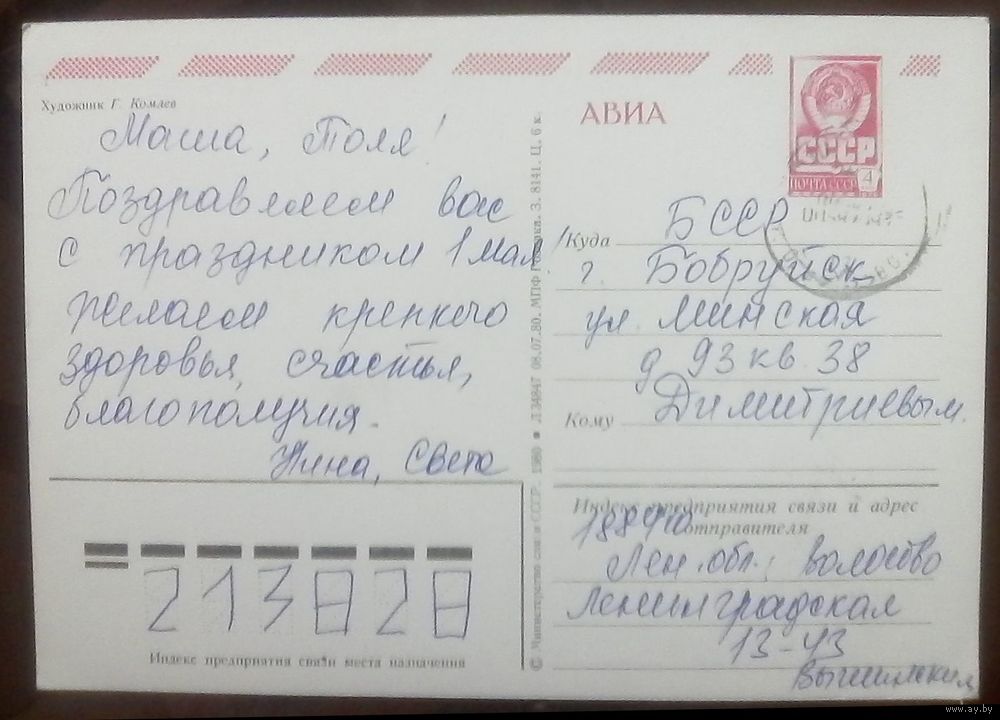 Художник Г. Комлев
Маша, Толя!
Поздравляем вас
с праздником 1 Мая!
Желаем крепкого
здоровья, счастья,
благополучия.
Нина, Света
АВИА
СССР
ПОЧТА СССР 4
Куда БССР
г. Бобруйск
ул. Минская
д 93 кв. 38
Кому Димитриевым.
Индекс предприятия связи и адрес
отправителя
Лен. обл., Волосово
Ленинградская
13-43
Вышинская
213828
Индекс предприятия связи места назначения
© Министерство связи СССР. 1980 ■ Л 34847 08.07.80. МПФ Гознака. З. 8141. Ц. 6 к.
www.ay.by